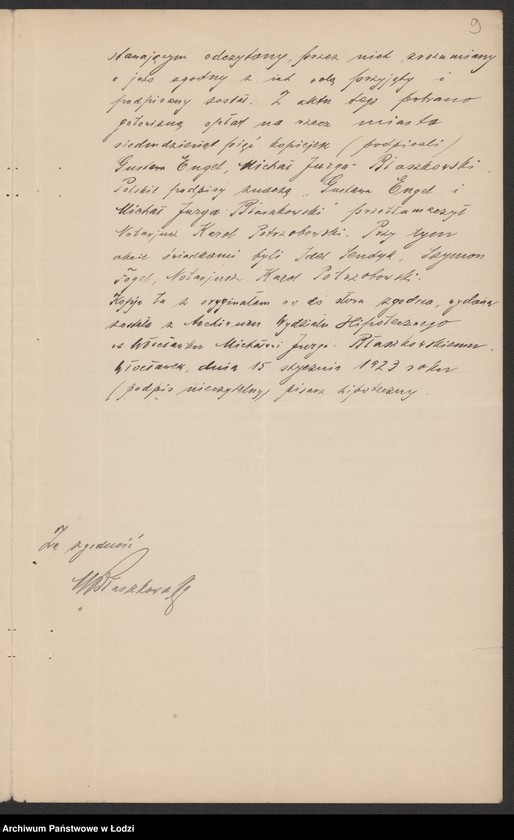 9
stawającym odczytany, przez nich zrozumiany
i jako zgodny z ich wolą przyjęty i
podpisany został. Z aktu tego pobrano
gotowizną opłat na rzecz miasta
siedemdziesiąt pięć kopiejek (podpisali)
Gustaw Engel, Michał Jurga-Błaszkowski.
Polskie podpisy znaczą "Gustaw Engel i
Michał Jurga Błaszkowski" przetłumaczył
Notarjusz Karol Potrzobowski. Przy tym
akcie świadkami byli Szymon
Fogel, Notarjusz Karol Potrzobowski.
Kopja ta z oryginałem co do słowa zgodna, wydana
została z Archiwum Wydziału Hipotecznego
we Włocławku Michałowi Jurga-Błaszkowskiemu.
Włocławek, dnia 15 stycznia 1923 roku
(podpis nieczytelny) pisarz hipoteczny.
Za zgodność
MBłaszkowski
Archiwum Państwowe w Łodzi